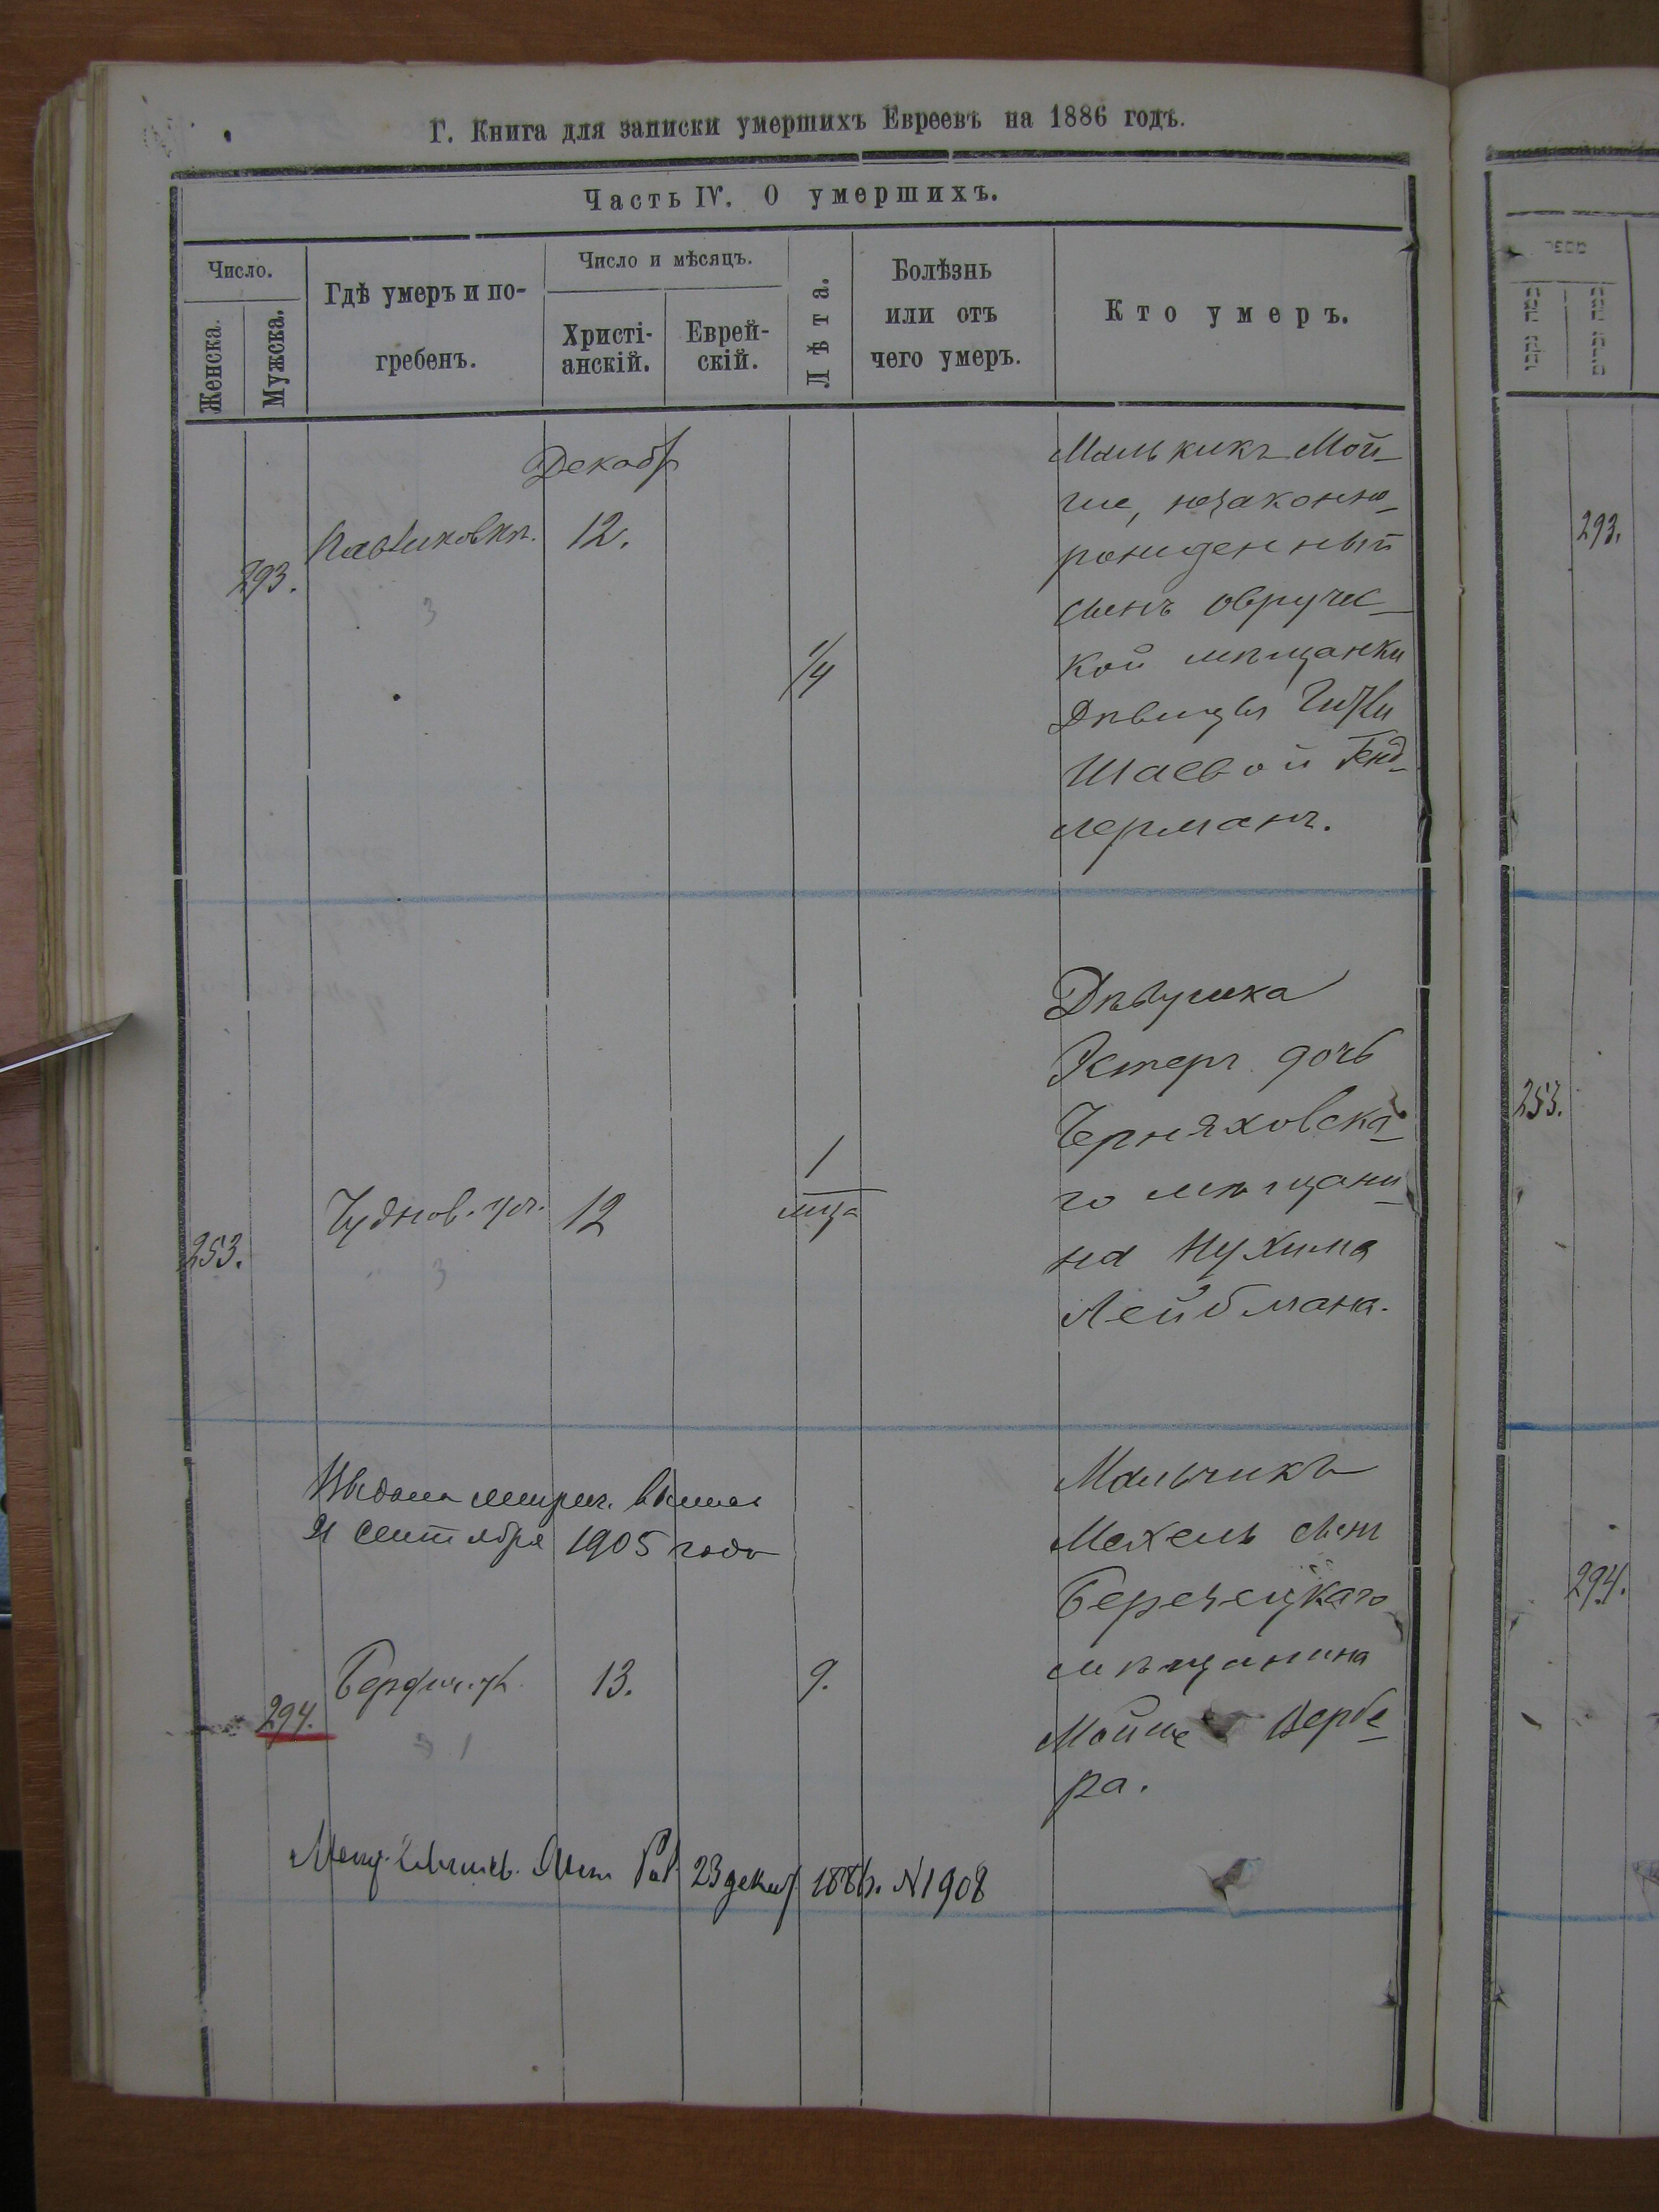 Г. Книга для записки умершихъ Евреевъ на 1886 годъ.
Часть IV. О умершихъ.
Число.
Женска.
Мужска.
Гдѣ умеръ и по-
гребенъ.
Число и мѣсяцъ.
Христі-
анскій.
Еврей-
скій.
Лѣта.
Болѣзнь
или отъ
чего умеръ.
Кто умеръ.
Декабр
293.
12.
1/4
Мальчикъ Мой-
ше, незаконно-
рожденный
сынъ овручс-
кой мѣщанки
Дѣвицы
Шаевой Генд-
лерманъ.
293.
3
253.
Чуднов. ул.
12
1
мца
Дѣвушка
Эстеръ дочь
Черняховска-
го мѣщани-
на Нухима
Лейбмана.
253.
3
Выдана метрич. выпись
21 Сентября 1905 года
294.
Бердич. ул.
13.
9.
Мальчикъ
Мехель сынъ
Березецкаго
мѣщанина
Мойше Вербе-
ра.
294.
1
23 декаб 1886. N1908